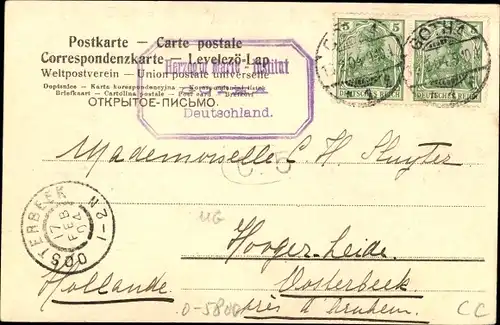 Postkarte – Carte postale
Correspondenzkarte – Levelező-Lap
Weltpostverein – Union postale universelle
Dopisnice – Karta korespondencyjna –
Briefkaart – Cartolina postale – Post card – Brefkort
ОТКРЫТОЕ-ПИСЬМО.
Herzogin Marie-Institut
Deutschland.
5 5
DEUTSCHES REICH
5 5
DEUTSCHES REICH
GOTHA
Mademoiselle C. H. Sluyter
C. 5
UG
OOSTERBEEK
17 FEB 04
1-2N
Hooger-Leide.
Hollande
Oosterbeek
près d'Arnhem.
0-5800
CC